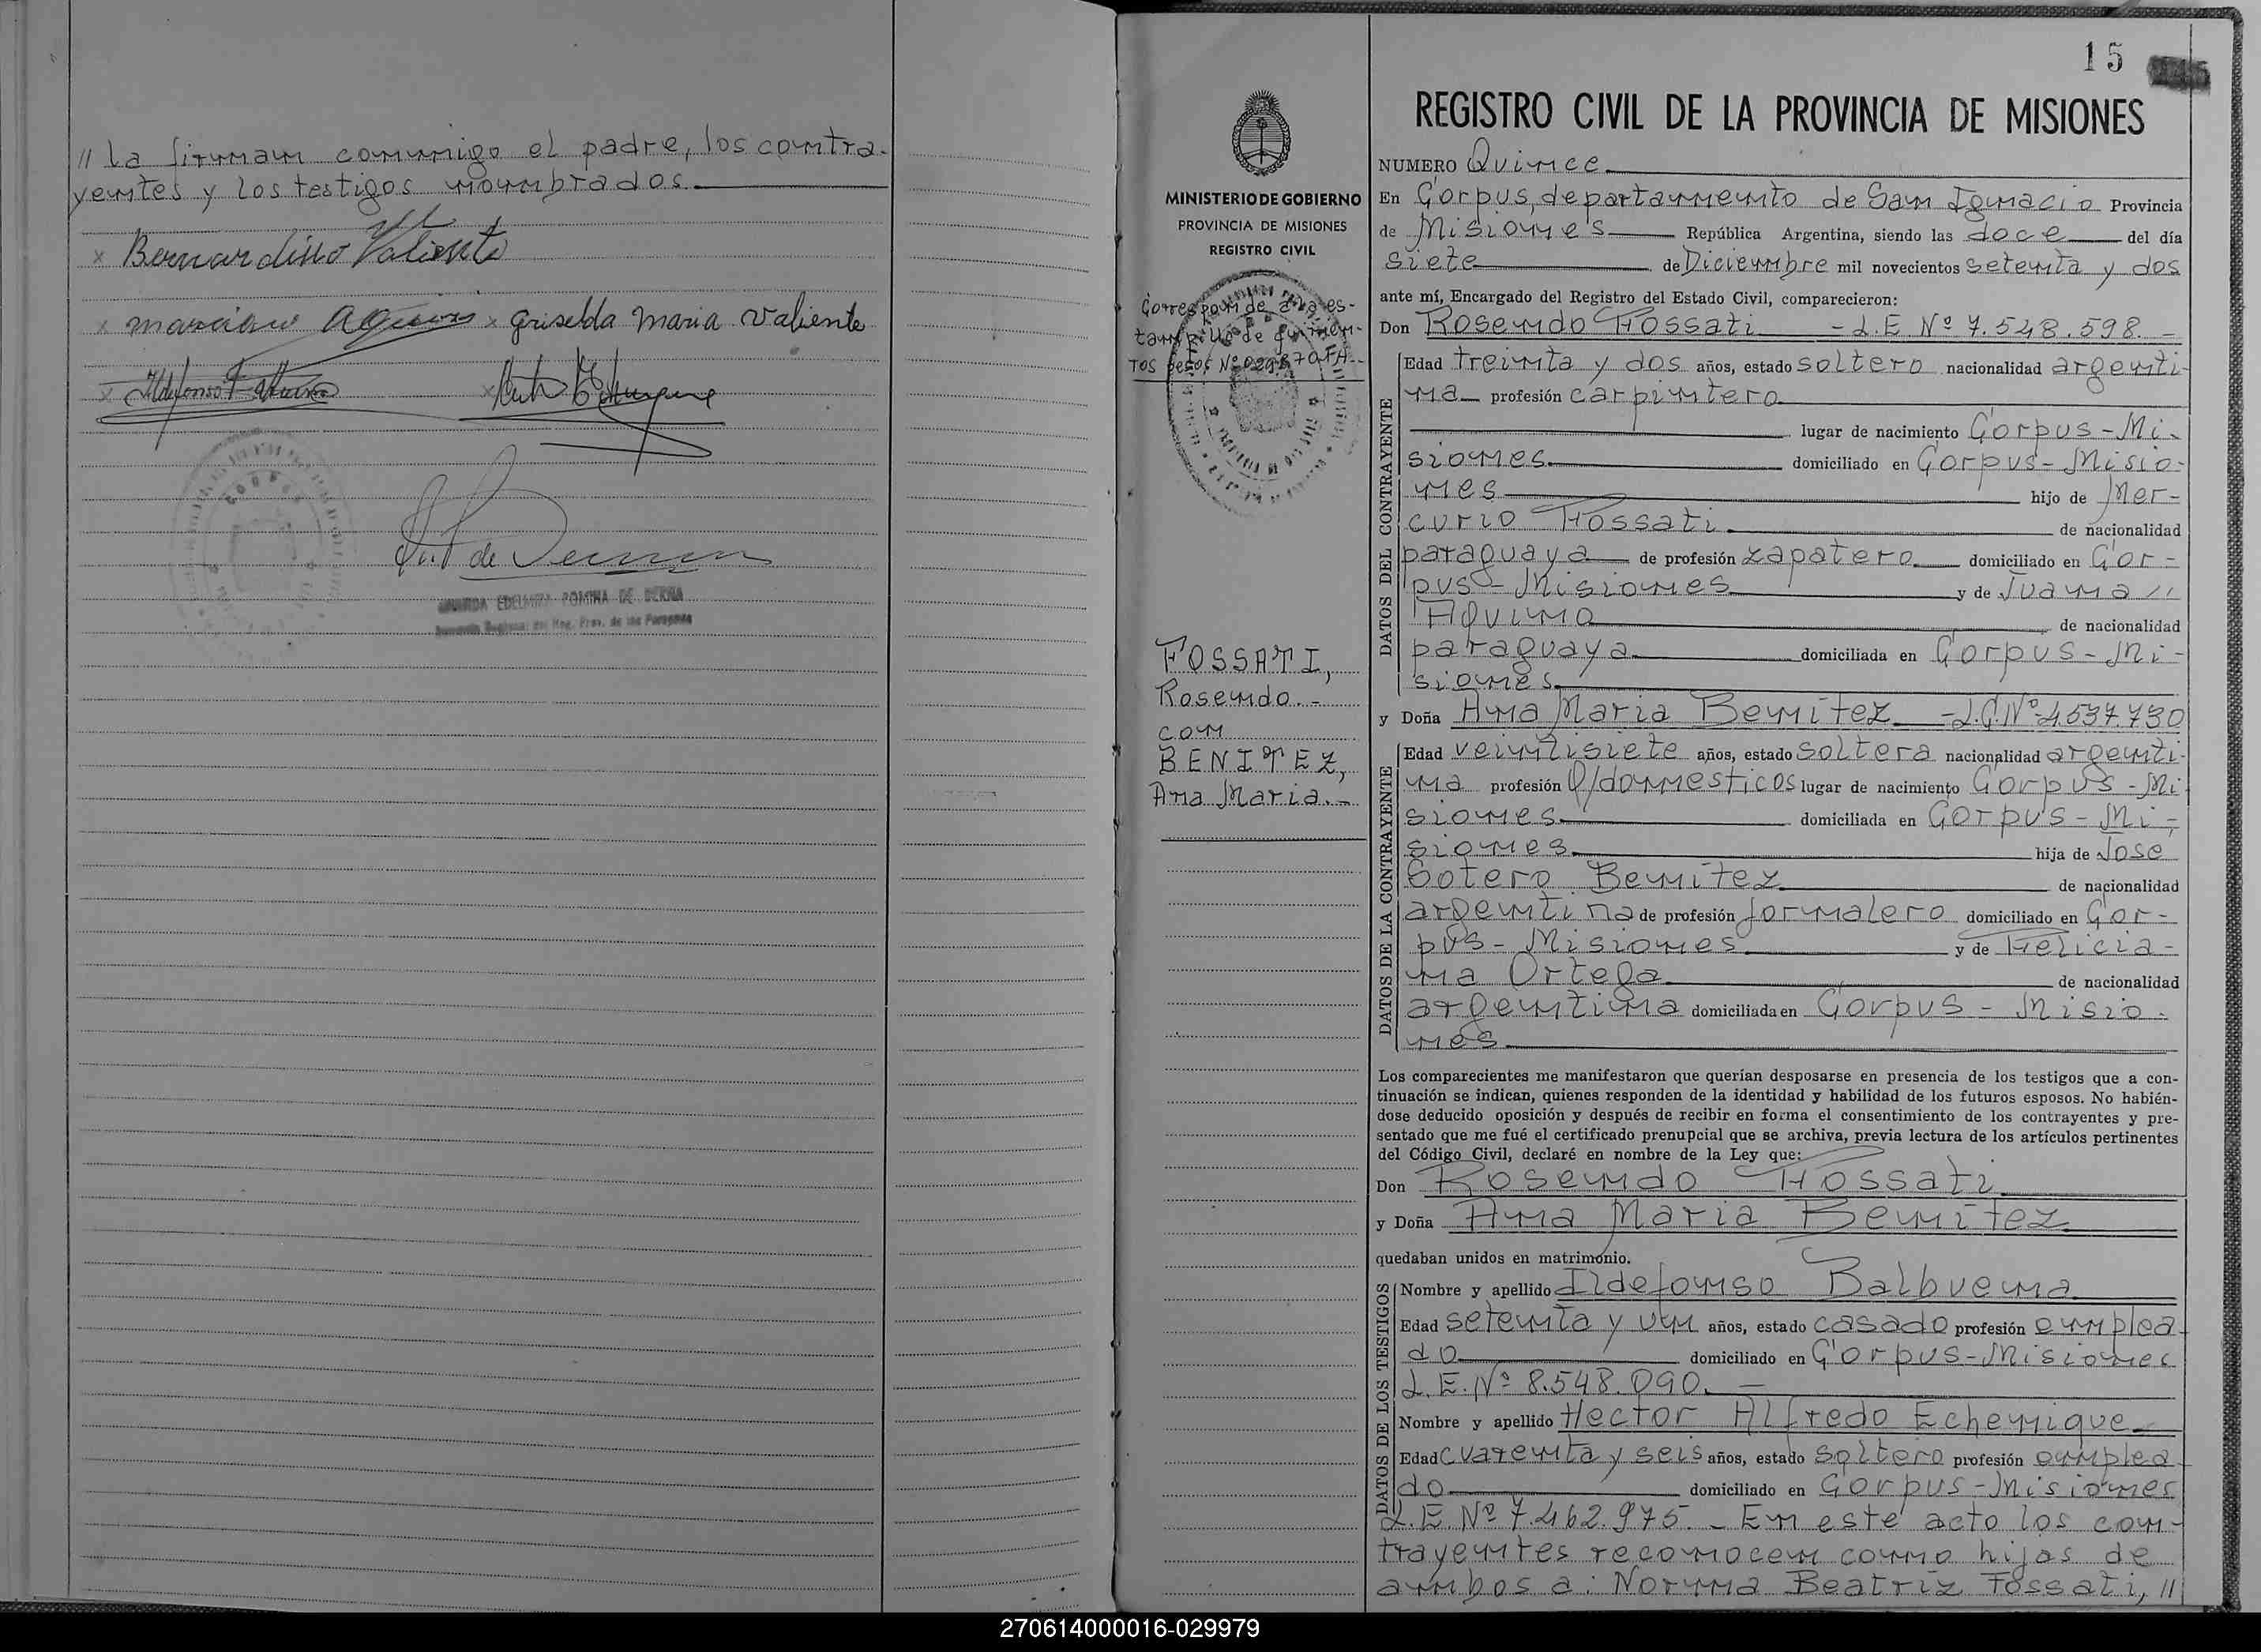 // la firman conmigo el padre, los contra-
yentes y los testigos nombrados.
x Bernardino Valiente
x marciano x Griselda Maria Valiente
x Ildefonso x
de
POMINA DE
15
REGISTRO CIVIL DE LA PROVINCIA DE MISIONES
MINISTERIO DE GOBIERNO
PROVINCIA DE MISIONES
REGISTRO CIVIL
Corresponde a la es-
tampilla de quinien-
tos pesos Nº
FOSSATI,
Rosendo.-
con
BENITEZ,
Ana Maria.-
NUMERO Quince
En Corpus, departamento de San Ignacio Provincia
de Misiones República Argentina, siendo las doce del día
siete de Diciembre mil novecientos setenta y dos
ante mí, Encargado del Registro del Estado Civil, comparecieron:
Don Rosendo Fossati - L.E Nº 7.548.598.-
DATOS DEL CONTRAYENTE
Edad treinta y dos años, estado soltero nacionalidad argenti-
na profesión carpintero
lugar de nacimiento Corpus - Mi-
siones domiciliado en Corpus - Misio-
nes hijo de Mer-
curio Fossati de nacionalidad
paraguaya de profesión zapatero domiciliado en Cor-
pus - Misiones y de Juana //
Aquino de nacionalidad
paraguaya domiciliada en Corpus - Mi-
siones
y Doña Ana Maria Benitez - L.C.Nº 4537.730
DATOS DE LA CONTRAYENTE
Edad veintisiete años, estado soltera nacionalidad argenti-
na profesión Q/domesticos lugar de nacimiento Corpus - Mi
siones domiciliada en Corpus - Mi-
siones hija de Jose
Sotero Benitez de nacionalidad
argentina de profesión jornalero domiciliado en Cor-
pus - Misiones y de Felicia-
na Ortega de nacionalidad
argentina domiciliada en Corpus - Misio-
nes
Los comparecientes me manifestaron que querían desposarse en presencia de los testigos que a con-
tinuación se indican, quienes responden de la identidad y habilidad de los futuros esposos. No habién-
dose deducido oposición y después de recibir en forma el consentimiento de los contrayentes y pre-
sentado que me fué el certificado prenupcial que se archiva, previa lectura de los artículos pertinentes
del Código Civil, declaré en nombre de la Ley que:
Don Rosendo Fossati
y Doña Ana Maria Benitez
quedaban unidos en matrimonio.
DATOS DE LOS TESTIGOS
Nombre y apellido Ildefonso Balbuena
Edad setenta y un años, estado casado profesión emplea-
do domiciliado en Corpus - Misiones
L.E. Nº 8.548.090.-
Nombre y apellido Hector Alfredo Echenique
Edad cuarenta y seis años, estado soltero profesión emplea-
do domiciliado en Corpus - Misiones
L.E. Nº 7.462.975.- En este acto los con-
trayentes reconocen como hijos de
ambos a: Norma Beatriz Fossati, //
270614000016-029979